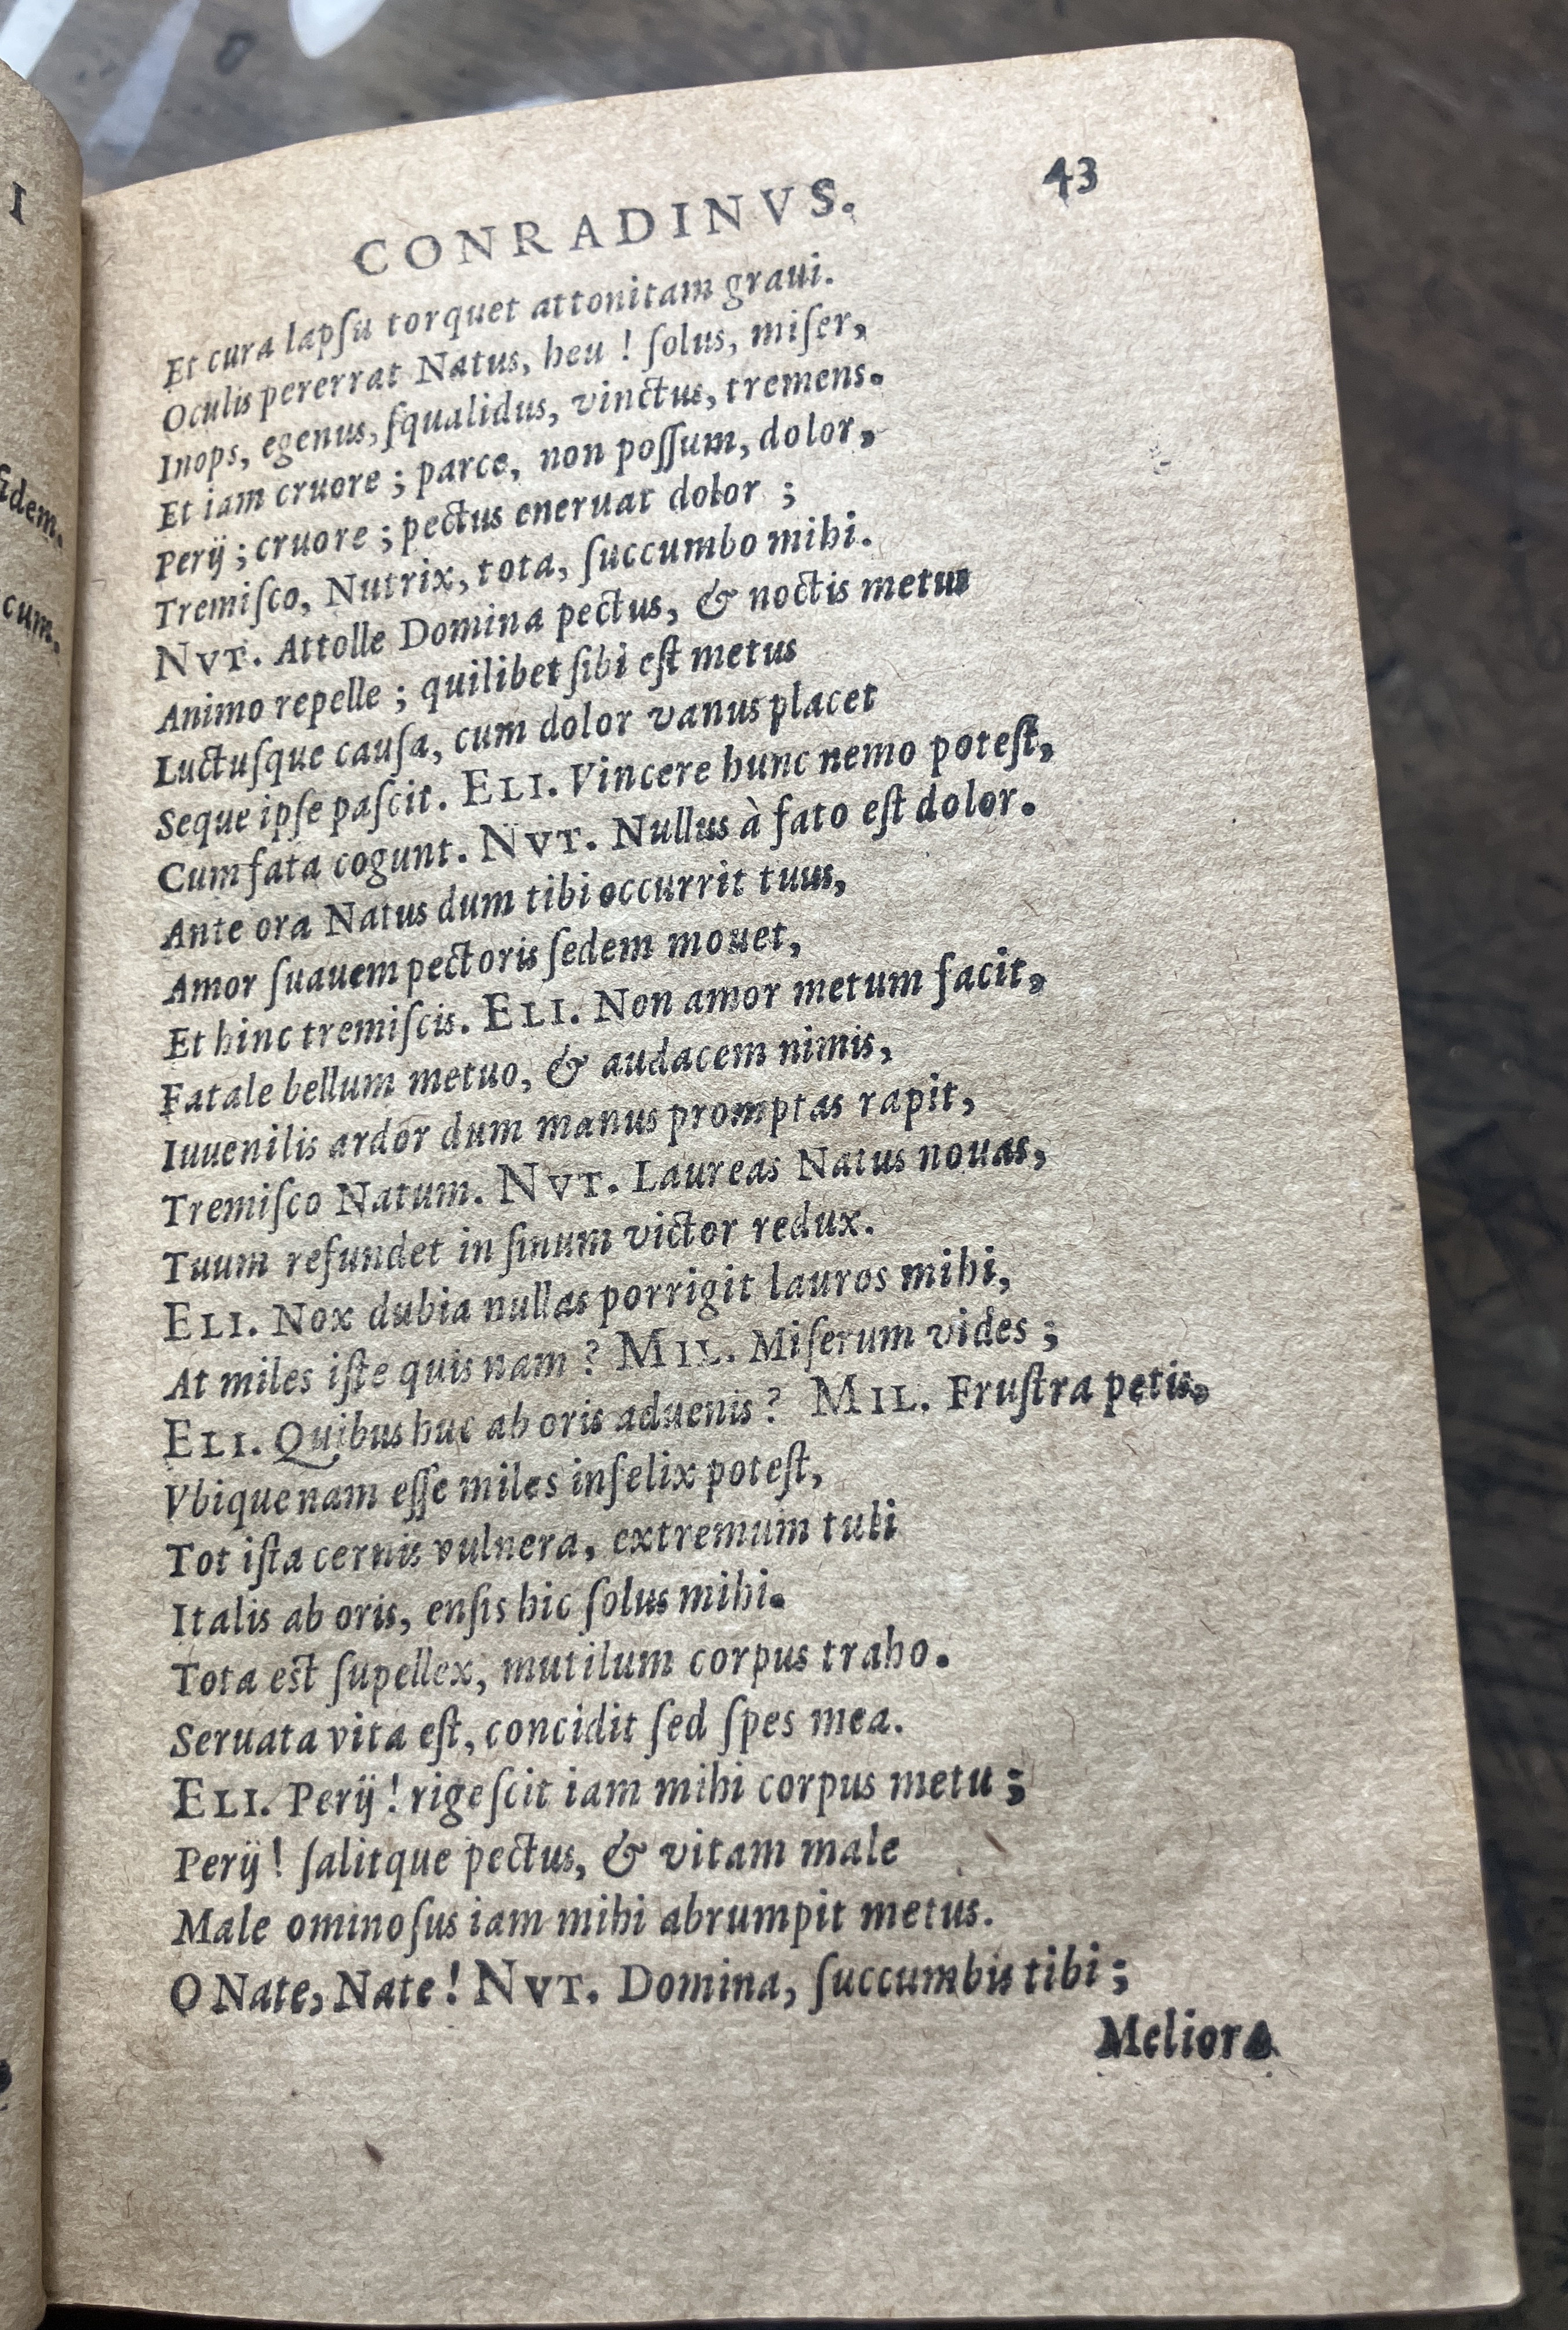 I
fidem.
cum.
CONRADINVS. 43
Et cura lapſu torquet attonitam graui.
Oculis pererrat Natus, heu ! ſolus, miſer,
Inops, egenus, ſqualidus, vinctus, tremens.
Et iam cruore ; parce, non poſſum, dolor,
Perij ; cruore ; pectus eneruat dolor ;
Tremiſco, Nutrix, tota, ſuccumbo mihi.
NVT. Attolle Domina pectus, & noctis metus
Animo repelle ; quilibet ſibi eſt metus
Luctuſque cauſa, cum dolor vanus placet
Seque ipſe paſcit. ELI. Vincere hunc nemo poteſt,
Cum fata cogunt. NVT. Nullus à fato eſt dolor.
Ante ora Natus dum tibi occurrit tuus,
Amor ſuauem pectoris ſedem mouet,
Et hinc tremiſcis. ELI. Non amor metum facit,
Fatale bellum metuo, & audacem nimis,
Iuuenilis ardor dum manus promptas rapit,
Tremiſco Natum. NVT. Laureas Natus nouas,
Tuum refundet in ſinum victor redux.
ELI. Nox dubia nullas porrigit lauros mihi,
At miles iſte quis nam ? MIL. Miſerum vides ;
ELI. Quibus huc ab oris aduenis ? MIL. Fruſtra petis,
Vbique nam eſſe miles infelix poteſt,
Tot iſta cernis vulnera, extremum tuli
Italis ab oris, enſis hic ſolus mihi.
Tota est ſupellex, mutilum corpus traho.
Seruata vita eſt, concidit ſed ſpes mea.
ELI. Perij ! rigeſcit iam mihi corpus metu ;
Perij ! ſalitque pectus, & vitam male
Male ominoſus iam mihi abrumpit metus.
O Nate, Nate ! NVT. Domina, ſuccumbis tibi ;
Meliora